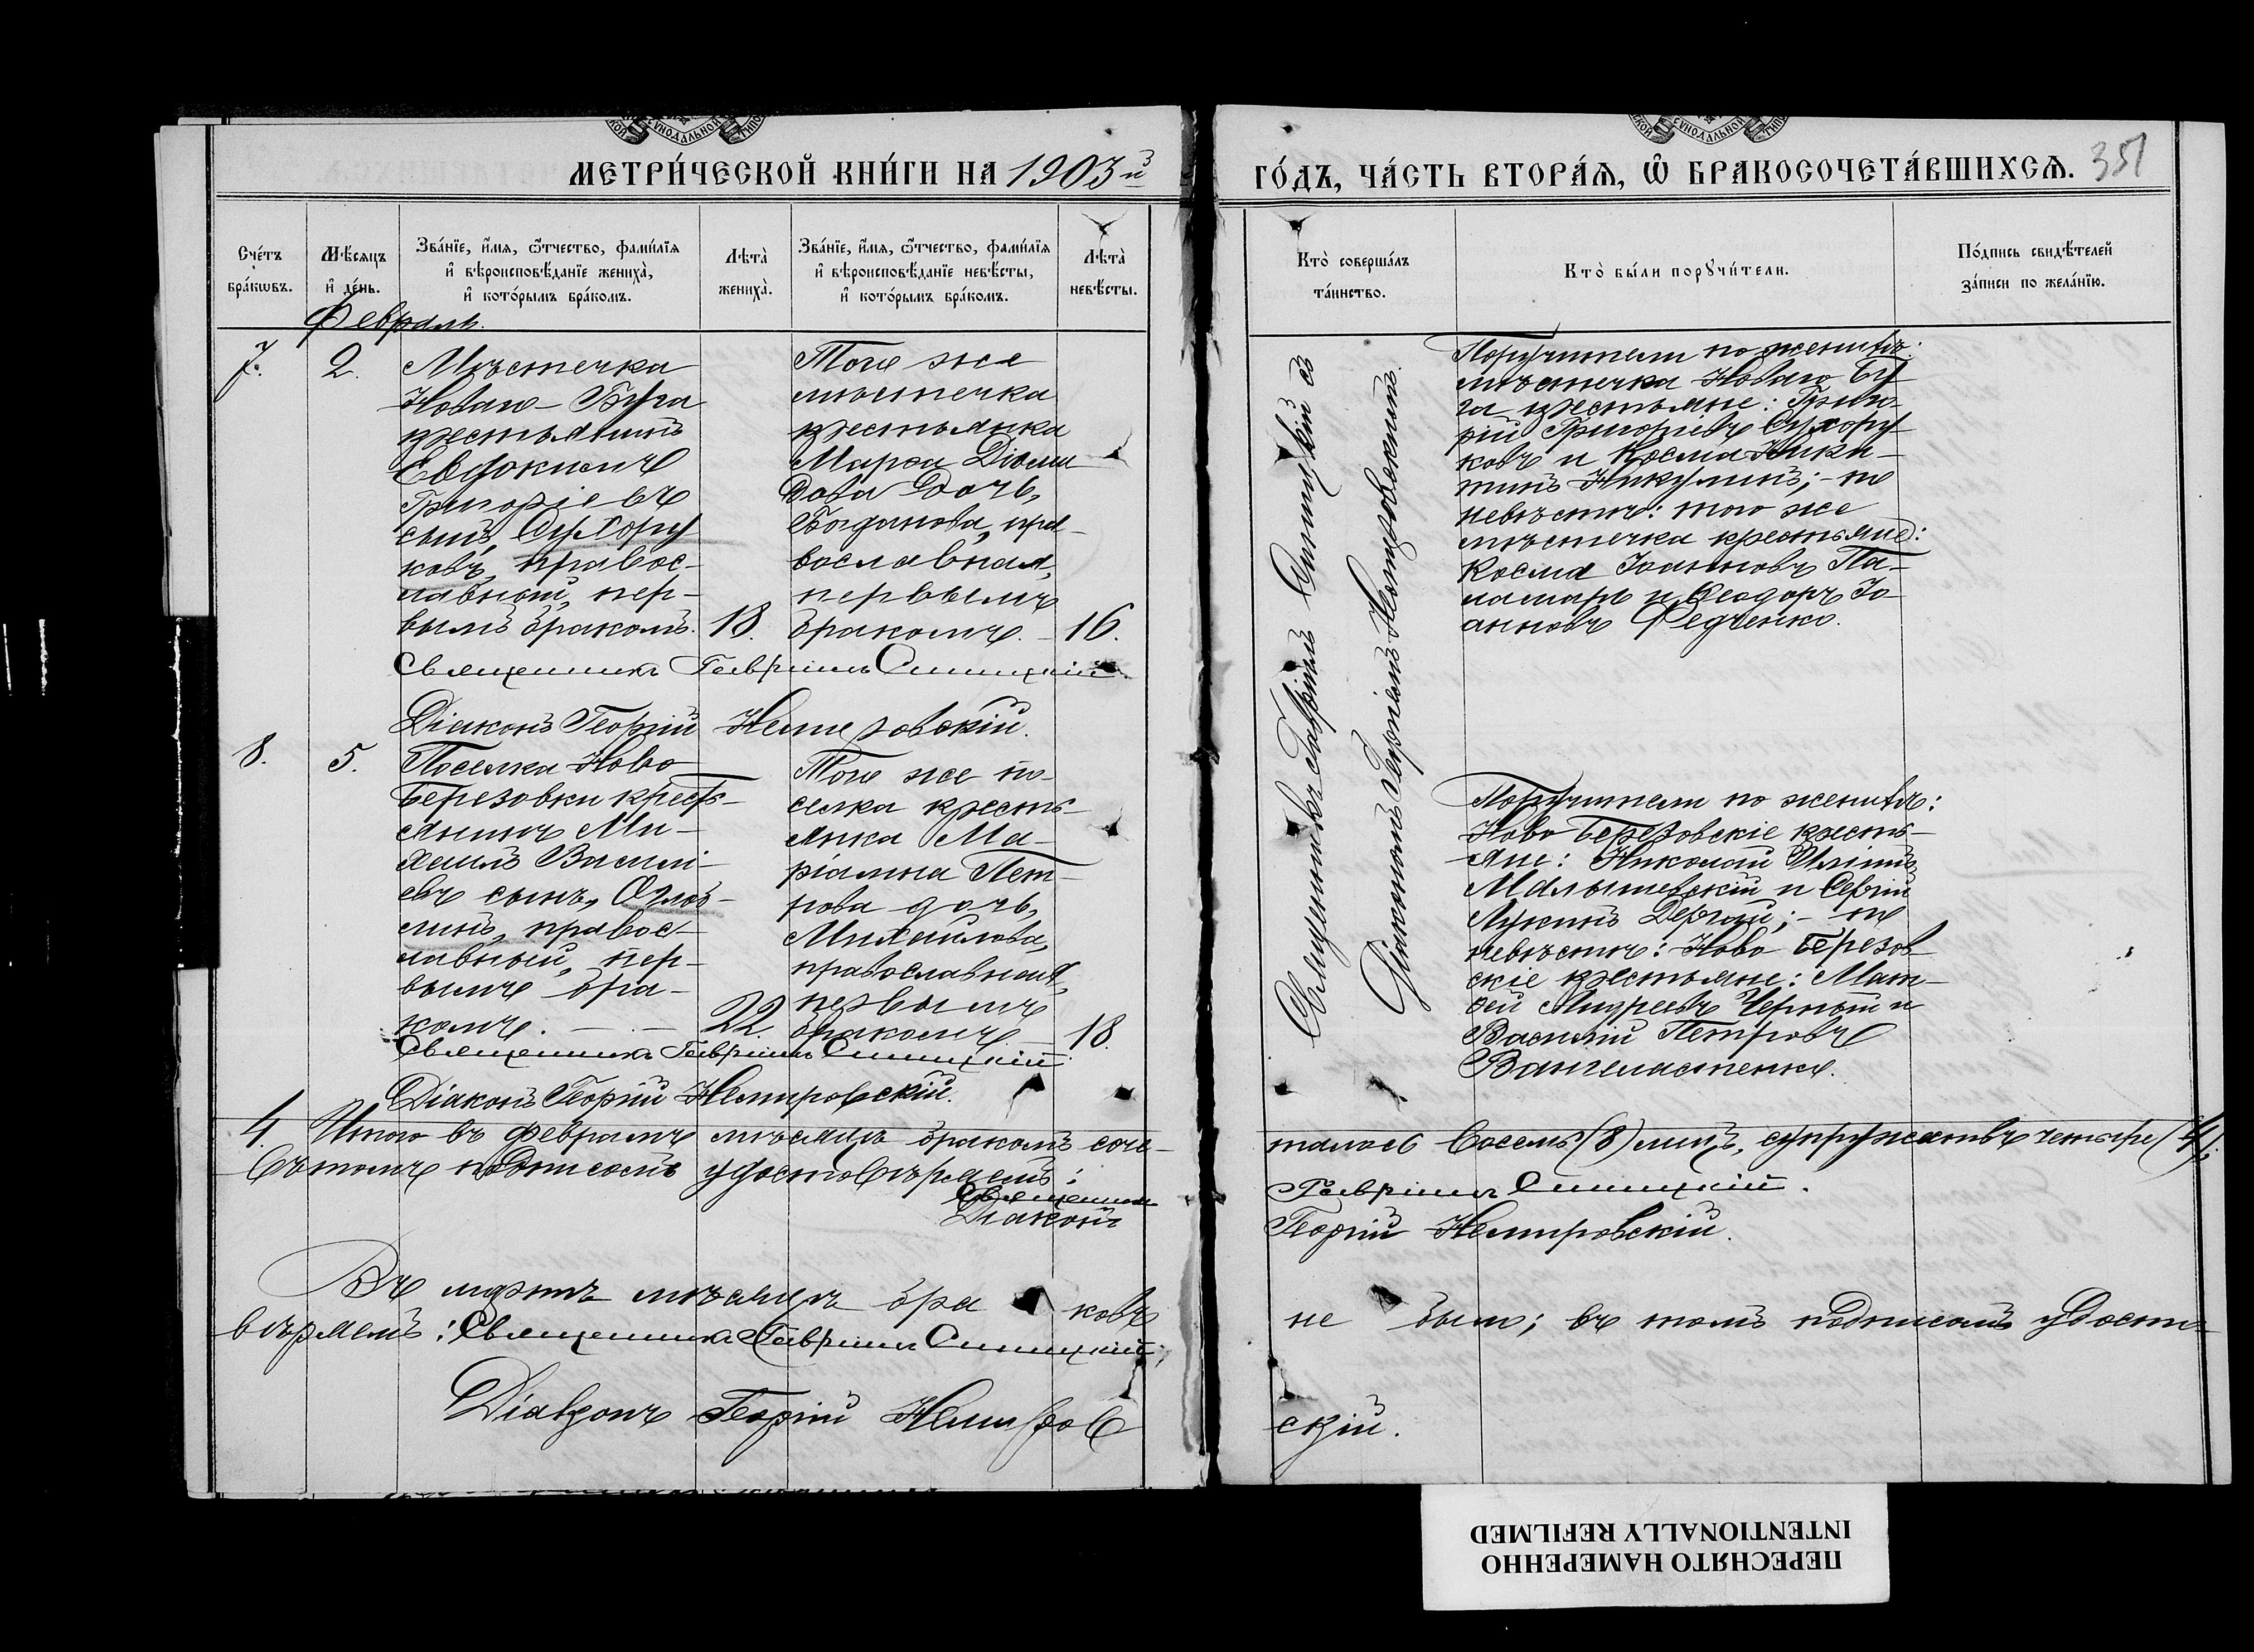 МЕТРИ́ЧЕСКОЙ КНИ́ГИ НА 1903й
ГО́ДЪ, ЧА́СТЬ ВТОРА́Я, Ѿ БРАКОСОЧЕТА́ВШИХСЯ.
351
Сче́тъ бра́кѡвъ.
Мѣ́сяцъ и҆ де́нь.
Зва́нїе, и҆́мя, ѻ҆́тчество, фами́лїя
и҆ вѣроисповѣ́данїе жениха̀,
и҆ кото́рымъ бра́комъ.
Лѣта̀ жениха̀.
Зва́нїе, и҆́мя, ѻ҆́тчество, фами́лїя
и҆ вѣроисповѣ́данїе невѣ́сты,
и҆ кото́рымъ бра́комъ.
Лѣта̀ невѣ́сты.
Кто̀ соверша́лъ
та́инство.
Кто̀ бы́ли порꙋчи́тели.
По́дпись свидѣ́телей
за́писи по жела́нїю.
Февраль.
7.
2.
Мѣстечка
Новаго-Буга
крестьянинъ
Евдокимъ
Григоріевъ
сынъ, Сухору
ковъ, правос-
лавный, пер-
вымъ бракомъ.
18.
Того же
мѣстечка
крестьянка
Марѳа Діоми
дова дочь,
Богданова, пра-
вославная,
первымъ
бракомъ. -
16.
Священникъ Гавріилъ Синицкій
Діаконъ Георгій Немировскій.
Поручители по женихѣ:
мѣстечка Новаго Бу
га крестьяне: Григо-
рій Григоріевъ Сухору
ковъ и Косма Ники-
тинъ Никулинъ; - по
невѣстѣ: того же
мѣстечка крестьяне:
Косма Іоанновъ Па-
ламарь и Ѳеодоръ Іо
анновъ Федченко.
Священникъ Гавріилъ Синицкій съ
Діакономъ Георгіемъ Немировскимъ.
8.
5.
Поселка Ново
Березовки кресть-
янинъ Ми-
хаилъ Василі-
евъ сынъ, Оглоб-
линъ, правос-
лавный, пер-
вымъ бра-
комъ. - -
22.
Того же по-
селка кресть-
янка Ма-
ріанна Пет-
рова дочь,
Михайлова,
православная,
первымъ
бракомъ -
18.
Священникъ Гавріилъ Синицкій
Діаконъ Георгій Немировскій.
Поручители по женихѣ:
Ново Березовскіе кресть-
яне: Николай Иліинъ
Малышевскій и Сергій
Лукинъ Дергай; - по
невѣстѣ: Ново Березов
скіе крестьяне: Мат-
ѳей Андреевъ Черный и
Василій Петровъ
4. Итого въ февралѣ мѣсяцѣ бракомъ соче-
талось восемь (8) лицъ, супружествъ четыре (4);
въ томъ подписомъ удостовѣряемъ:
Священникъ Гавріилъ Синицкій.
Діаконъ Георгій Немировскій.
Въ мартѣ мѣсяцѣ бра ковъ
не было; въ томъ подписомъ удосто-
вѣряемъ: Священникъ Гавріилъ Синицкій;
Діаконъ Георгій Немиров
скій.
ПЕРЕСНЯТО НАМЕРЕННО
INTENTIONALLY REFILMED